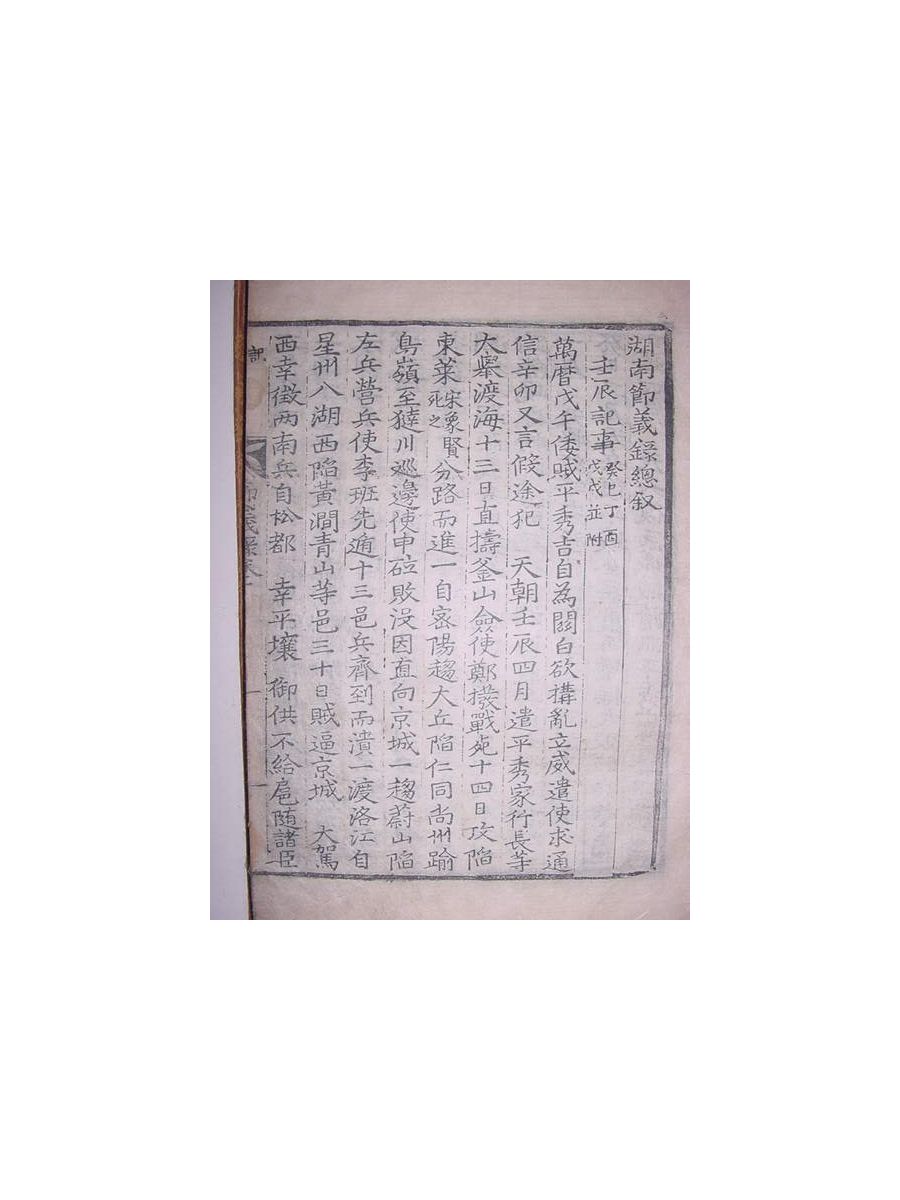 湖南節義錄總叙
壬辰記事 癸巳丁酉戊戌並附
萬曆戊午倭賊平秀吉自為關白欲搆亂立威遣使求通
信辛卯又言假途犯 天朝壬辰四月遣平秀家行長等
大舉渡海十三日直擣釜山僉使鄭撥戰死十四日攻陷
東萊宋象賢死之分路而進一自密陽趨大丘陷仁同尚州踰
鳥嶺至㺚川巡邊使申砬敗沒因直向京城一趨蔚山陷
左兵營兵使李班先遁十三邑兵齊到而潰一渡洛江自
星州八湖西陷黃澗青山等邑三十日賊逼京城 大駕
西幸徵兩南兵自松都 幸平壤 御供不給扈随諸臣
節義錄卷